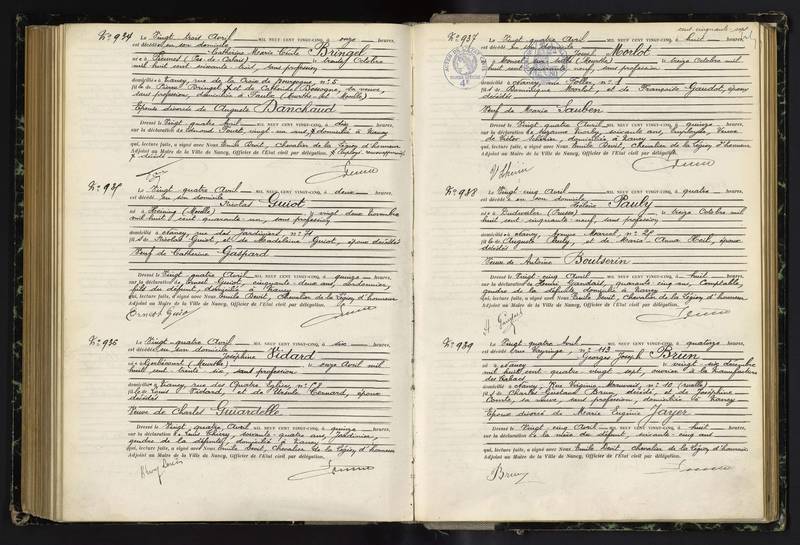 No 934 Le Vingt trois Avril MIL NEUF CENT VINGT-CINQ, à onze heures,
est décédée en son domicile
Catherine Marie Cécile Bringel
née à (Pas-de-Calais) le Octobre mil
huit cent soixante huit, sans profession
domiciliée à Nancy, rue de la Croix de Bourgogne, no 5
fille de Pierre Bringel, et de Catherine Bossogne, sa veuve,
sans profession, domiciliée à (Meurthe-et-Moselle)
Epouse divorcée de Auguste Banchaud
Dressé le Vingt quatre Avril MIL NEUF CENT VINGT-CINQ, à dix heures,
sur la déclaration de Edmond vingt un ans, domicilié à Nancy
qui, lecture faite, a signé avec Nous Emile Devit, Chevalier de la Légion d'honneur
Adjoint au Maire de la Ville de Nancy, Officier de l'État civil par délégation.
No 935 Le Vingt quatre Avril MIL NEUF CENT VINGT-CINQ, à deux heures,
est décédé en son domicile
Nicolas Guiot
né à (Moselle) le vingt deux Novembre
mil huit cent quarante-un, sans profession
domicilié à Nancy, rue des Jardiniers, no 71
fils de Nicolas Guiot, et de Madeleine Guiot, époux décédés
Veuf de Catherine Gaspard
Dressé le Vingt quatre Avril MIL NEUF CENT VINGT-CINQ, à quinze heures,
sur la déclaration de Ernest Guiot, cinquante-deux ans, cordonnier,
fils du défunt, domicilié à Nancy
qui, lecture faite, a signé avec Nous Emile Devit, Chevalier de la Légion d'honneur
Adjoint au Maire de la Ville de Nancy, Officier de l'État civil par délégation.
Ernest Guiot
No 936 Le Vingt-quatre Avril MIL NEUF CENT VINGT-CINQ, à six heures,
est décédée en son domicile
Joséphine Vidard
née à Gerbécourt (Meurthe) le onze Avril mil
huit cent trente six, sans profession
domiciliée à Nancy, rue des Quatre Eglises, no
fille de Louis Vidard, et de Ursule époux
décédés
Veuve de Charles Guiardelle
Dressé le Vingt quatre Avril MIL NEUF CENT VINGT-CINQ, à quinze heures,
sur la déclaration de Louis Thiéry, soixante-quatre ans, Jardinier,
gendre de la défunte, domicilié à Nancy
qui, lecture faite, a signé avec Nous Emile Devit, Chevalier de la Légion d'honneur
Adjoint au Maire de la Ville de Nancy, Officier de l'État civil par délégation.
cent cinquante sept
No 937 Le Vingt quatre Avril MIL NEUF CENT VINGT-CINQ, à huit heures,
est décédé en son domicile
Joseph Morlot
né à (Meurthe) le treize Octobre mil
huit cent quarante neuf, sans profession
domicilié à Nancy, rue
fils de Dominique Morlot, et de Françoise Gaudot, époux
décédés
Veuf de Marie Sauben
Dressé le Vingt quatre Avril MIL NEUF CENT VINGT-CINQ, à quinze heures,
sur la déclaration de Suzanne Morlot, soixante ans, Employée, Veuve
de Victor domiciliée à Nancy
qui, lecture faite, a signé avec Nous Emile Devit, Chevalier de la Légion d'honneur
Adjoint au Maire de la Ville de Nancy, Officier de l'État civil par délégation.
No 938 Le Vingt cinq Avril MIL NEUF CENT VINGT-CINQ, à quatre heures,
est décédée en son domicile
Pauly
née à Dudweiler (Prusse) le treize Octobre mil
huit cent cinquante-neuf, sans profession
domiciliée à Nancy, Avenue Marcel, no 28
fille de Auguste Pauly, et de Maria-Anna Heil, époux
décédés
Veuve de Antoine Boutserin
Dressé le Vingt cinq Avril MIL NEUF CENT VINGT-CINQ, à huit heures,
sur la déclaration de Henri quarante cinq ans, Comptable,
gendre de la défunte, domicilié à Nancy
qui, lecture faite, a signé avec Nous Emile Devit, Chevalier de la Légion d'honneur
Adjoint au Maire de la Ville de Nancy, Officier de l'État civil par délégation.
No 939 Le Vingt quatre Avril MIL NEUF CENT VINGT-CINQ, à quatorze heures,
est décédé rue no 113
Georges Joseph Brun
né à Nancy le vingt six décembre
mil huit cent quatre vingt sept, ouvrier à la Manufacture
des tabacs
domicilié à Nancy, Rue Virginie Mauvais, no 10
fils de Charles Gustave Brun, décédé, et de Joséphine
Comte, sa veuve, sans profession, domiciliée à Nancy
Epoux divorcé de Marie Eugénie Jayer
Dressé le Vingt cinq Avril MIL NEUF CENT VINGT-CINQ, à huit heures,
sur la déclaration de la mère du défunt, soixante cinq ans
qui, lecture faite, a signé avec Nous Emile Devit, Chevalier de la Légion d'honneur
Adjoint au Maire de la Ville de Nancy, Officier de l'État civil par délégation.
Brun